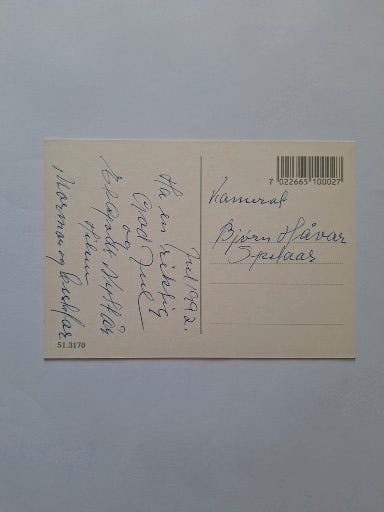 Jul 1992.
Ha en riktig
God Jul
og
Et godt Nyttår
Hilsen
Mormor og
51.3170
7 022665 100027
Kamerat
Bjørn Håvar